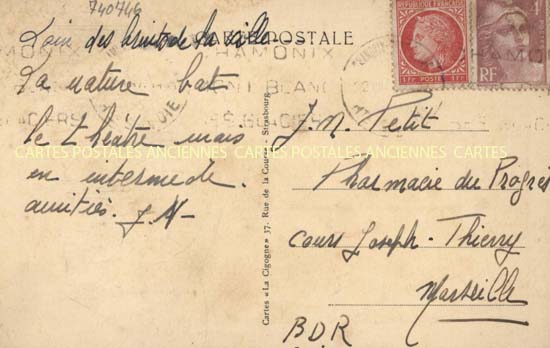 740746
Loin des bruits de la ville
CARTE POSTALE
CHAMONIX
MONT BLANC
La nature bat
le théâtre mais
en intermède.
amitiés. J.M-
Cartes «La Cigogne» 37, Rue de la Course, Strasbourg
RÉPUBLIQUE FRANÇAISE
1F POSTES 1F
RF
J. M. Petit
Pharmacie du Progrès
cours Joseph-Thierry
Marseille
BDR
CARTES POSTALES ANCIENNES CARTES POSTALES ANCIENNES CARTES